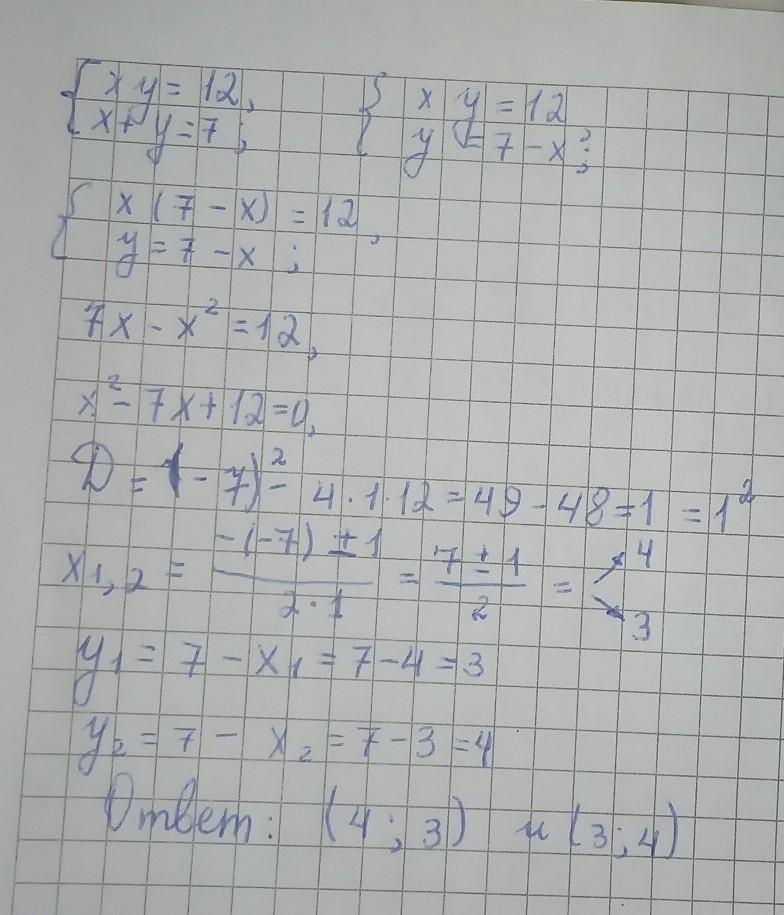 { xy = 12,   { xy = 12
{ x + y = 7;   { y = 7 - x;
{ x(7 - x) = 12,
{ y = 7 - x;
7x - x² = 12,
x² - 7x + 12 = 0,
D = (-7)² - 4·1·12 = 49 - 48 = 1 = 1²
x1,2 = (-(-7) ± 1)/(2·1) = (7 ± 1)/2 = ↗ 4 ↘ 3
y1 = 7 - x1 = 7 - 4 = 3
y2 = 7 - x2 = 7 - 3 = 4
Ответ: (4; 3) и (3; 4)